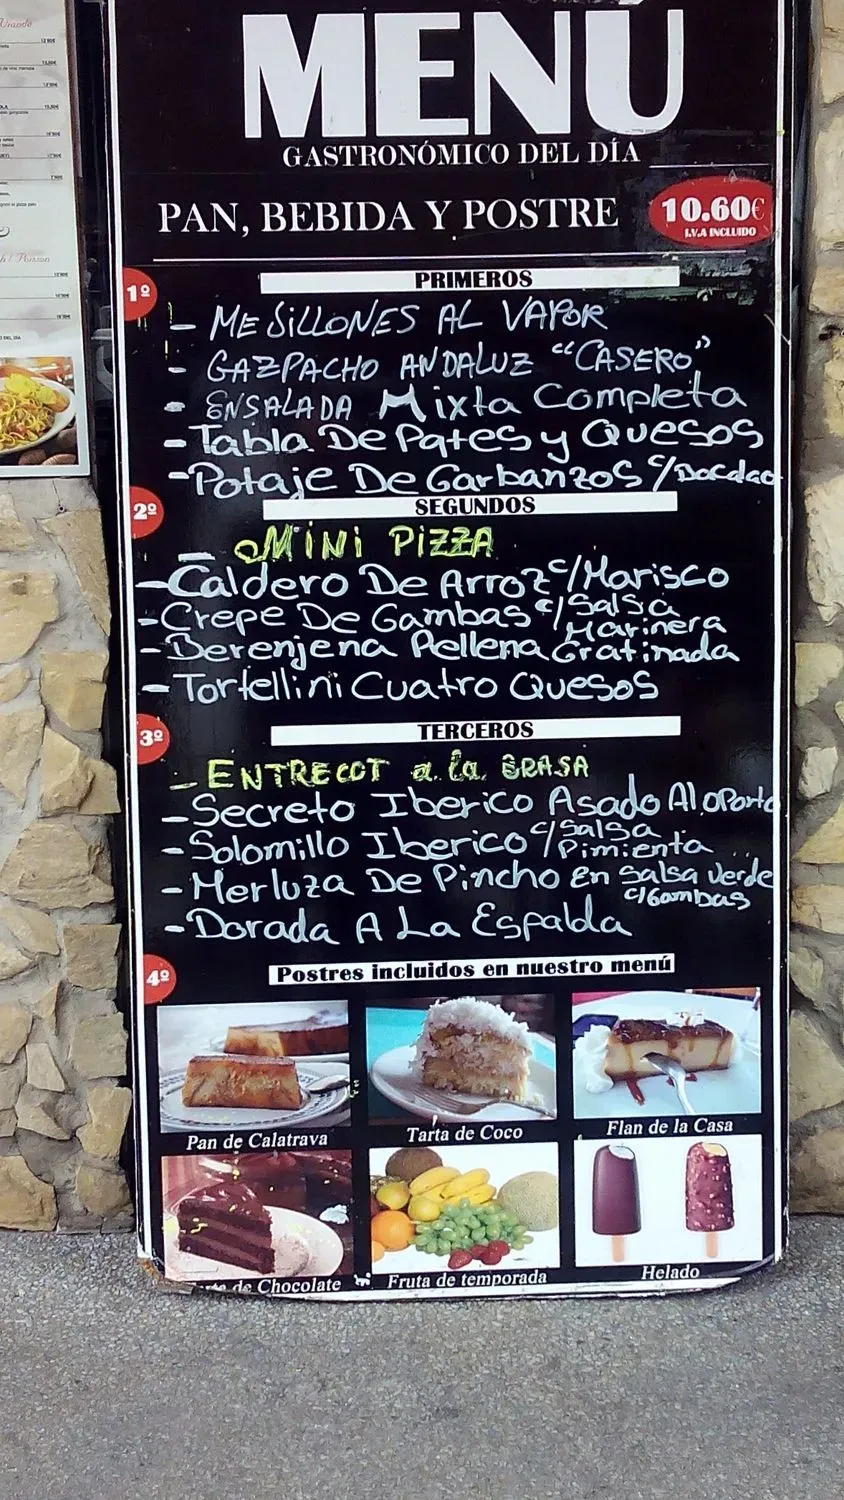 MENÚ
GASTRONÓMICO DEL DÍA
PAN, BEBIDA Y POSTRE
10.60€
I.V.A INCLUIDO
PRIMEROS
1º
- MEJILLONES AL VAPOR
- GAZPACHO ANDALUZ "CASERO"
- ENSALADA Mixta Completa
- Tabla De Pates y Quesos
- Potaje De Garbanzos c/Bacalao
SEGUNDOS
2º
- MINI PIZZA
- Caldero De Arroz c/Marisco
- Crepe De Gambas c/Salsa
Marinera
- Berenjena Rellena Gratinada
- Tortellini Cuatro Quesos
TERCEROS
3º
- ENTRECOT a la BRASA
- Secreto Iberico Asado Al oporto
- Solomillo Iberico c/Salsa
Pimienta
- Merluza De Pincho En Salsa Verde
c/Gambas
- Dorada A La Espalda
4º
Postres incluidos en nuestro menú
Pan de Calatrava
Tarta de Coco
Flan de la Casa
de Chocolate
Fruta de temporada
Helado